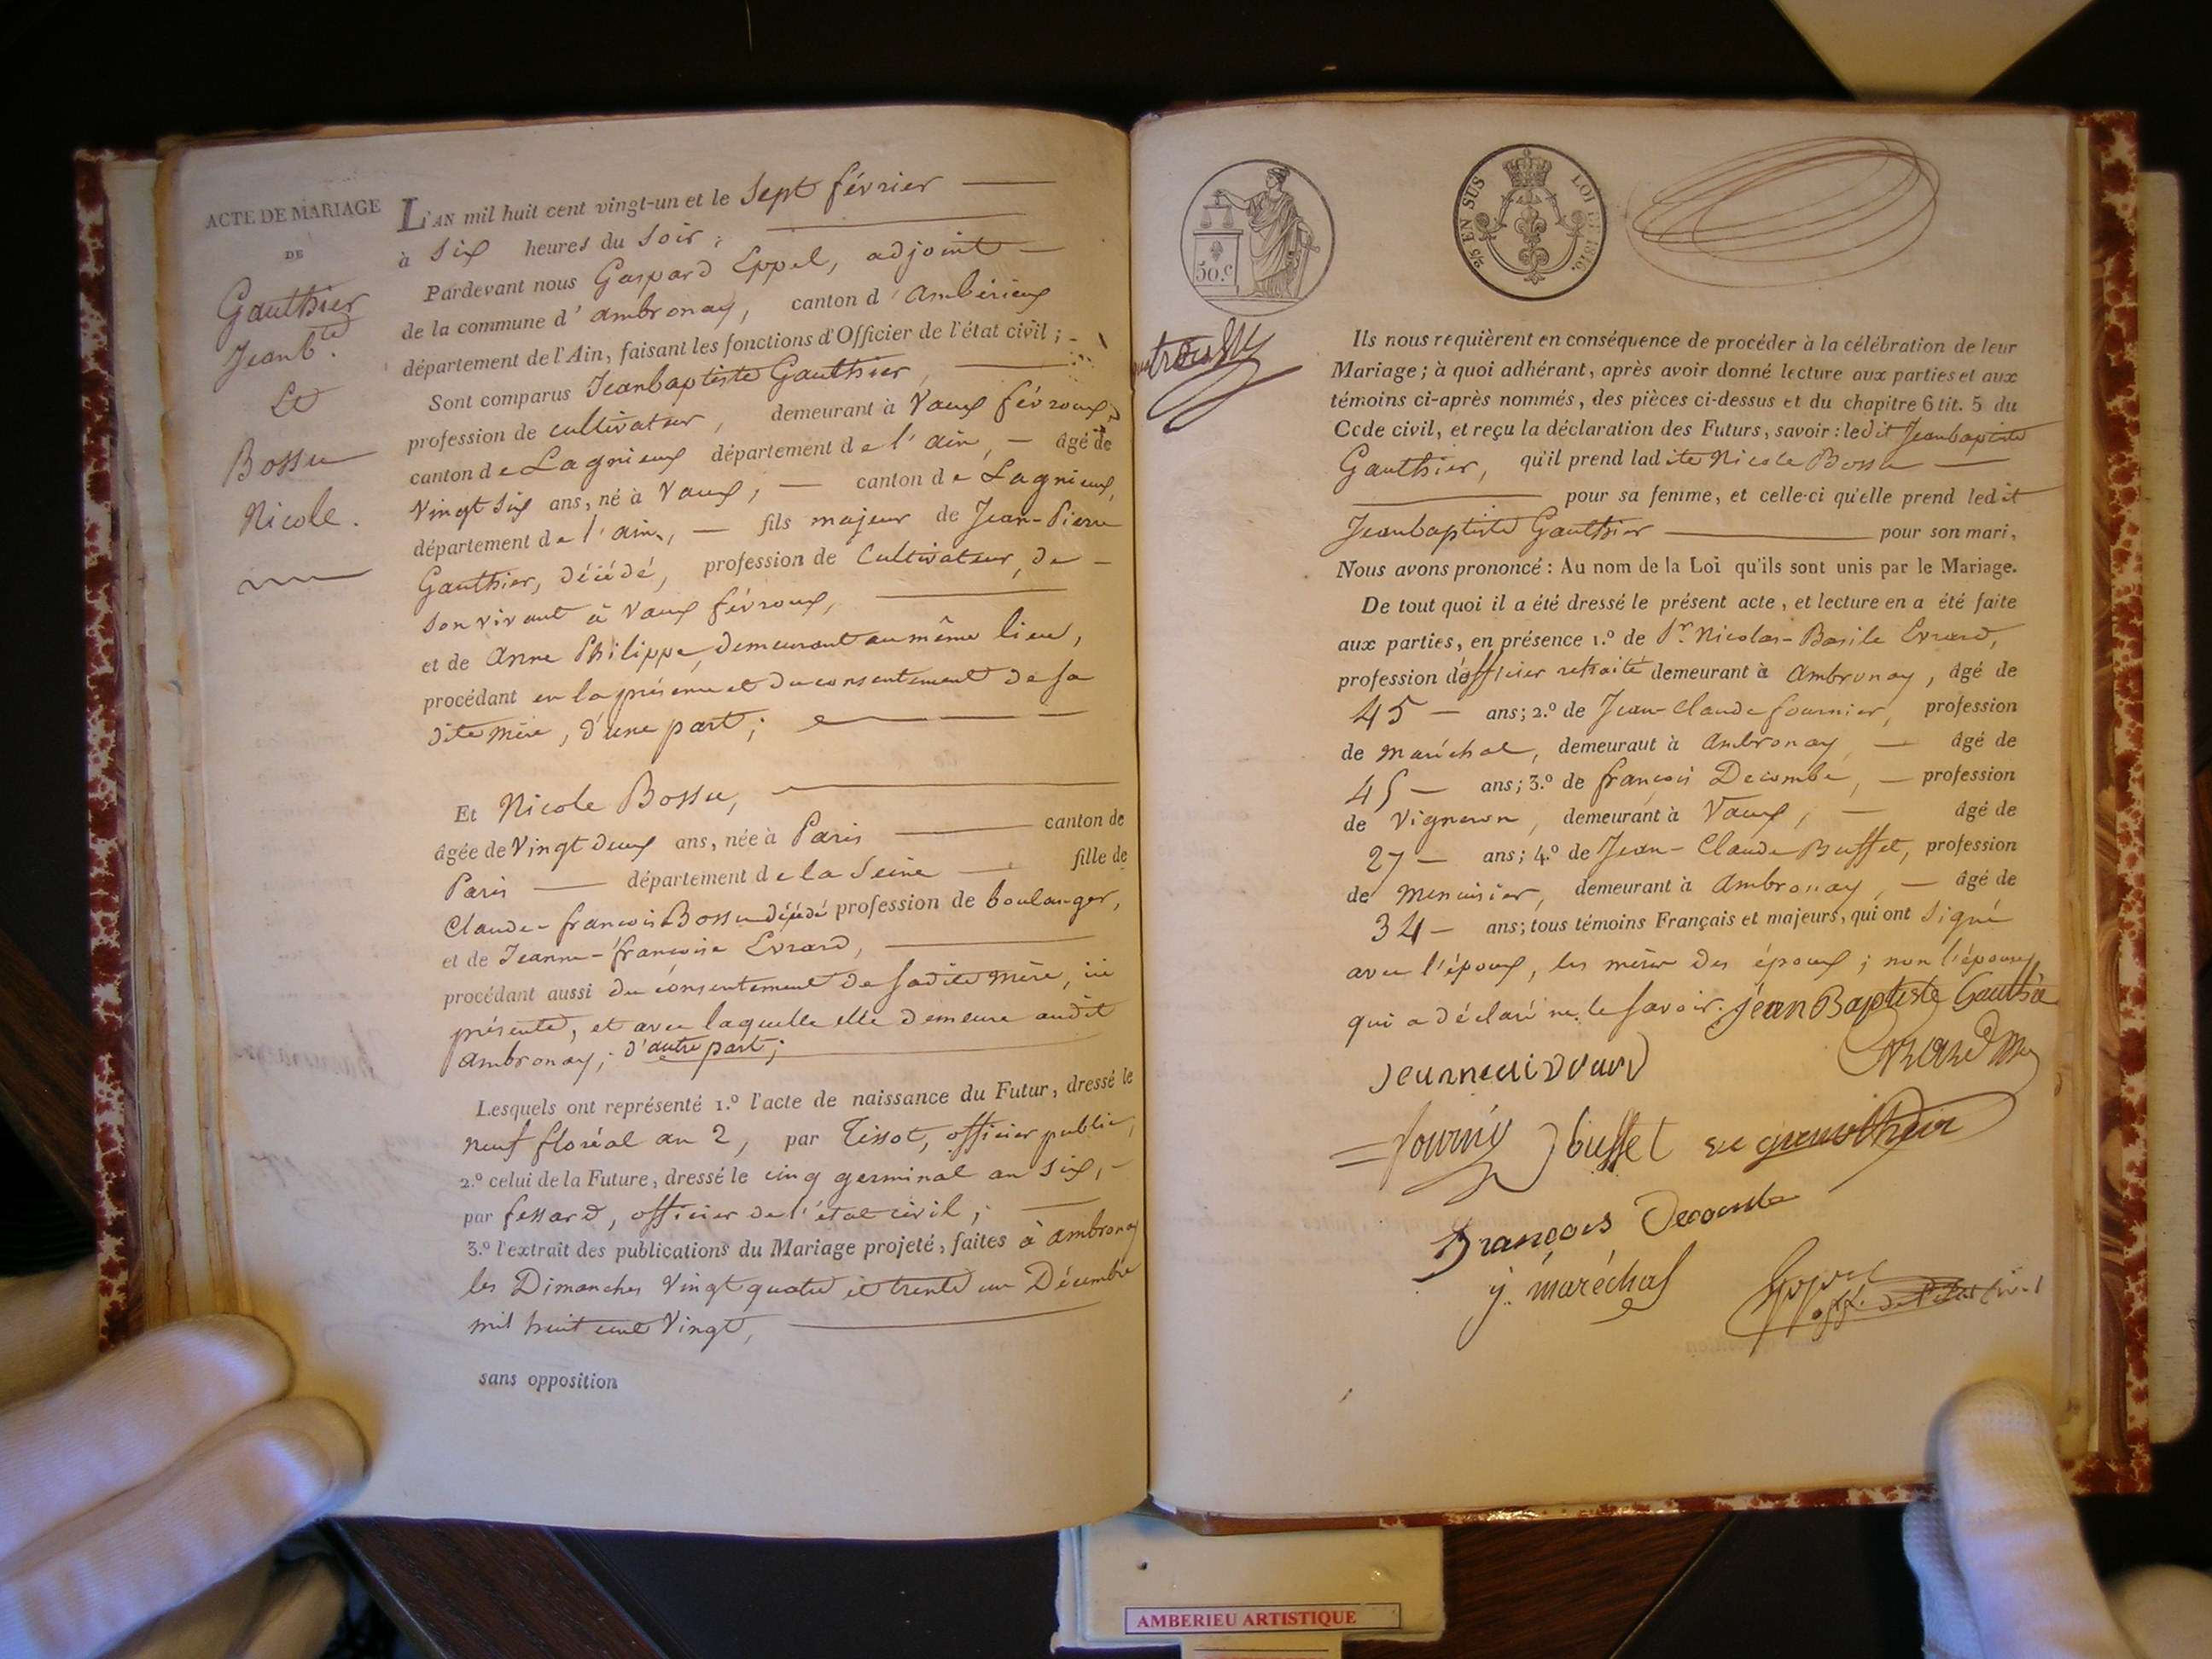 ACTE DE MARIAGE
DE
Gauthier
Jeanb.te
Et
Bossu
Nicole.
L'AN mil huit cent vingt-un et le Sept février
à Six heures du Soir,
Pardevant nous Gaspard Eppel, adjoint
de la commune d'ambronay, canton d'ambérieux
département de l'Ain, faisant les fonctions d'Officier de l'état civil;
Sont comparus Jeanbaptiste Gauthier,
profession de cultivateur, demeurant à Vaux févroux,
canton de Lagnieux département de l'ain, — âgé de
Vingt Six ans, né à Vaux, — canton de Lagnieux,
département de l'ain, — fils majeur de Jean-Pierre
Gauthier, décédé, profession de Cultivateur, de
Son vivant à Vaux févroux,
et de Anne Philippe, demeurant au même lieu,
procédant en la présence et du consentement de sa
dite mère, d'une part;
Et Nicole Bossu,
âgée de Vingt deux ans, née à Paris canton de
Paris département de la Seine fille de
Claude-francois Bossu décédé profession de boulanger,
et de Jeanne-francoise Evrard,
procédant aussi du consentement de sadite mère, ici
présente, et avec laquelle elle demeure audit
ambronay; d'autre part;
Lesquels ont représenté 1.º l'acte de naissance du Futur, dressé le
neuf floréal an 2, par Tissot, officier public,
2.º celui de la Future, dressé le cinq germinal an six,
par fessard, officier de l'état civil;
3.º l'extrait des publications du Mariage projeté, faites à ambronay
les Dimanches Vingt quatre et trente un Décembre
mil huit cent Vingt,
sans opposition
50.c
25 EN SUS LOI DE 1816.
Ils nous requièrent en conséquence de procéder à la célébration de leur
Mariage; à quoi adhérant, après avoir donné lecture aux parties et aux
témoins ci-après nommés, des pièces ci-dessus et du chapitre 6 tit. 5 du
Code civil, et reçu la déclaration des Futurs, savoir: ledit Jeanbaptiste
Gauthier, qu'il prend ladite Nicole Bossu
pour sa femme, et celle-ci qu'elle prend ledit
Jeanbaptiste Gauthier pour son mari,
Nous avons prononcé: Au nom de la Loi qu'ils sont unis par le Mariage.
De tout quoi il a été dressé le présent acte, et lecture en a été faite
aux parties, en présence 1.º de Sr. Nicolas-Basile Evrard,
profession d'officier retraité demeurant à Ambronay, âgé de
45 — ans; 2.º de Jean-Claude fournier, profession
de maréchal, demeurant à Ambronay, — âgé de
45 — ans; 3.º de françois Decombe, — profession
de Vigneron, demeurant à Vaux, — âgé de
27 — ans; 4.º de Jean-Claude Buffet, profession
de menuisier, demeurant à Ambronay, — âgé de
34 — ans; tous témoins Français et majeurs, qui ont signé
avec l'époux, les mères des époux; non l'épouse,
qui a déclaré ne le savoir. jean Baptiste Gauthié
buffet
françois Decombe
j. maréchal
Eppel
off. de l'état Civil
AMBERIEU ARTISTIQUE